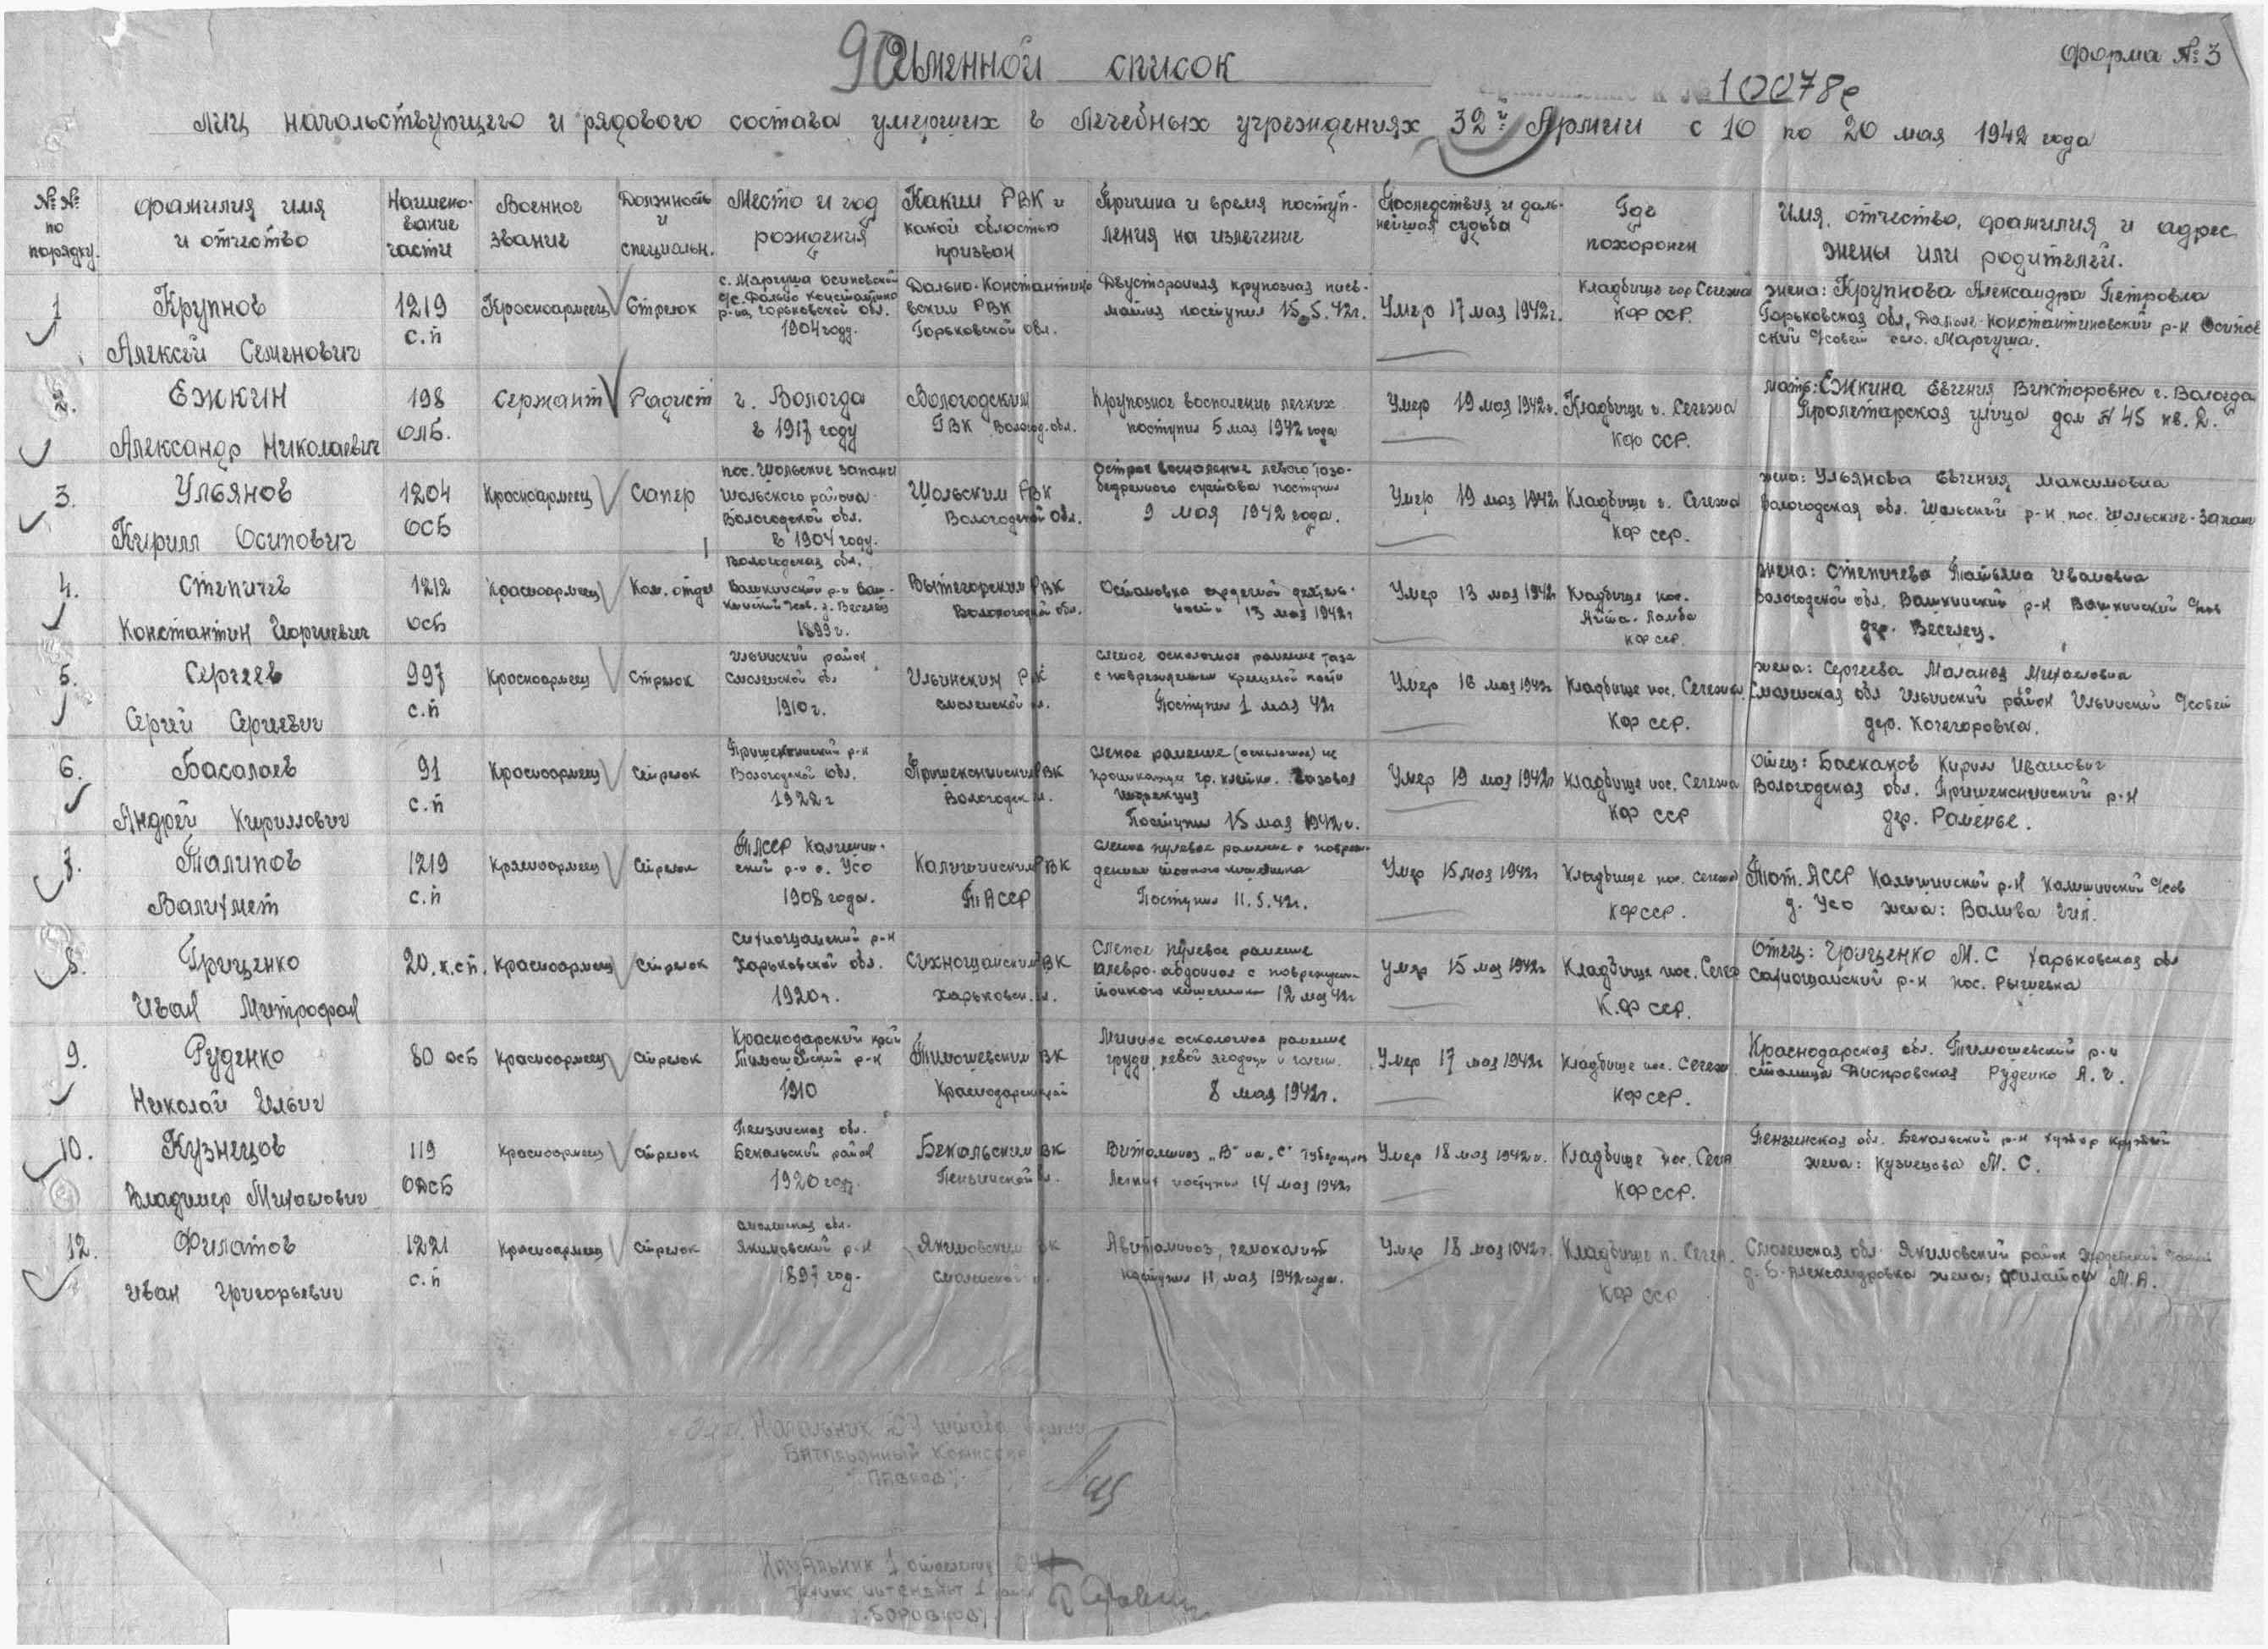 Форма № 3
90
Именной список
10078с
лиц начальствующего и рядового состава умерших в лечебных учреждениях 32й Армии с 10 по 20 мая 1942 года
№ № по порядку.
Фамилия имя и отчество
Наименование части
Военное звание
Должность и специальн.
Место и год рождения
Каким РВК и какой областью призван
Причина и время поступления на излечение
Последствия и дальнейшая судьба
Где похоронен
Имя, отчество, фамилия и адрес жены или родителей.
1 Крупнов Алексей Семенович
1219 с.п
Красноармеец
Стрелок
с. Маргуша Осиновской с/с. Дально Константино р-на, Горьковской обл. 1904 году.
Дально-Константиновским РВК Горьковской обл.
Двусторонняя крупозная поступил 15.5.42г.
Умер 17 мая 1942г.
Кладбище гор Сегежа КФ ССР.
жена: Крупнова Александра Петровна Горьковская обл, Дальне-Константиновский р-н село. Маргуша.
2. Ежкин Александр Николаевич
198 ОЛБ.
Сержант
Радист
г. Вологда в 1917 году
Вологодским ГВК Вологод. обл.
Крупозное воспаление легких поступил 5 мая 1942 года
Умер 19 мая 1942г.
Кладбище г. Сегежа КФ ССР.
мать: Ежкина Евгения Викторовна г. Вологда Пролетарская улица дом № 45 кв. 2.
3. Ульянов Кирилл Осипович
1204 ОСБ
Красноармеец
Сапер
пос. Шольские запани Шольского района Вологодской обл. в 1904 году.
Шольским РВК Вологодской обл.
Острое воспаление левого тазобедренного сустава поступил 9 мая 1942 года.
Умер 19 мая 1942г
Кладбище г. Сегежа КФ ССР.
жена: Ульянова Евгения Максимовна Вологодская обл. Шольский р-н пос. Шольские-Запани
4. Степичев Константин Георгиевич
1212 ОСБ
Красноармеец
Ком. отдел
Вологодская обл. Вашкинский р-н Вашкинский д. Веселец 1899 г.
Вытегорским РВК Вологодской обл.
Остановка сердечной 13 мая 1942г
Умер 13 мая 1942г
Кладбище пос. Ламба КФ ССР.
жена: Степичева Татьяна Ивановна Вологодской обл, Вашкинский р-н Вашкинский дер. Веселец.
5. Сергеев Сергей Сергеевич
997 с.п
Красноармеец
Стрелок
Ильинский район Смоленской обл 1910 г.
Ильинским РВК Смоленской
слепое осколочное ранение таза с повреждением крестцовой кости Поступил 1 мая 42г
Умер 16 мая 1942г
Кладбище пос. Сегежа КФ ССР.
жена: Сергеева Маланья Михайловна Смоленская обл Ильинский район Ильинский дер. Кочегоровка.
6. Басалаев Андрей Кириллович
91 с.п
Красноармеец
Стрелок
Пришекснинский р-н Вологодской обл. 1922 г
Пришекснинским РВК Вологодск
Слепое ранение (осколочное) Газовая инфекция Поступил 15 мая 1942 г.
Умер 19 мая 1942г
Кладбище пос. Сегежа КФ ССР
Отец: Баскаков Кирил Иванович Вологодская обл. Пришекснинский р-н дер. Раменье.
7. Талипов Валихмет
1219 с.п
Красноармеец
Стрелок
ТАССР Калининский р-н д. Усо 1908 года.
Калининским РВК ТАССР
Слепое пулевое ранение с повреждением тонкого кишечника Поступил 11.5.42г.
Умер 15 мая 1942г
Кладбище пос. Сегежа КФССР.
Тат. АССР Калининский р-н Калининский д. Усо жена: Валива
8. Гриценко Иван Митрофан
20. к.с п.
Красноармеец
Стрелок
Харьковской обл. 1920 г.
слепое пулевое ранение с повреждением тонкого кишечника 12 мая 42г
Умер 15 мая 1942г
Кладбище пос. Сегеж К.Ф ССР.
Отец: Гриценко М. С Харьковская обл
9. Руденко Николай Ильич
80 осб
Красноармеец
Стрелок
Краснодарский край Тимошевский р-н 1910
Тимошевским РВК Краснодарский
осколочное ранение груди, левой ягодицы и голени. 8 мая 1942г.
Умер 17 мая 1942г
Кладбище пос. Сегеж КФ ССР.
Краснодарская обл. Тимошевский р-н станица Днепровская Руденко А. И.
10. Кузнецов Владимир Михайлович
119
Красноармеец
Стрелок
Пензинская обл. Бекальский район 1920 год.
Бекальским РВК Пензинской
Легких поступил 14 мая 1942г
Умер 18 мая 1942 г.
Кладбище пос. Сегеж КФ ССР.
Пензинская обл. Бекальский р-н хутор жена: Кузнецова М. С.
12. Филатов Иван Григорьевич
1221 с.п
Красноармеец
Стрелок
Смоленская обл. Якимовский р-н 1897 год.
Якимовским Смоленской
Авитаминоз, гемоколит поступил 11, мая 1942 года.
Умер 18 мая 1942г.
Кладбище п. Сегеж. КФ ССР
Смоленская обл. Якимовский район Александровка жена: Филатов М. А.
Начальник штаба
Батальонный Комиссар
Начальник 1 отделения
Техник интендант 1 ранга
/.Боровков/.